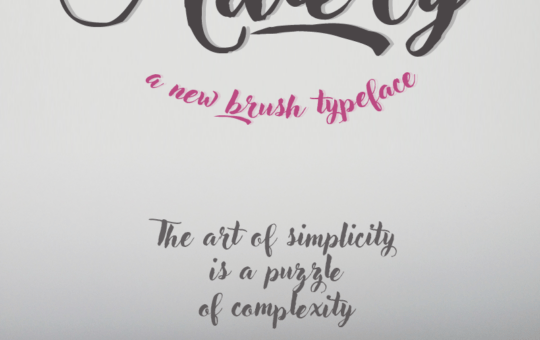 a new brush typeface
The art of simplicity
is a puzzle
of complexity